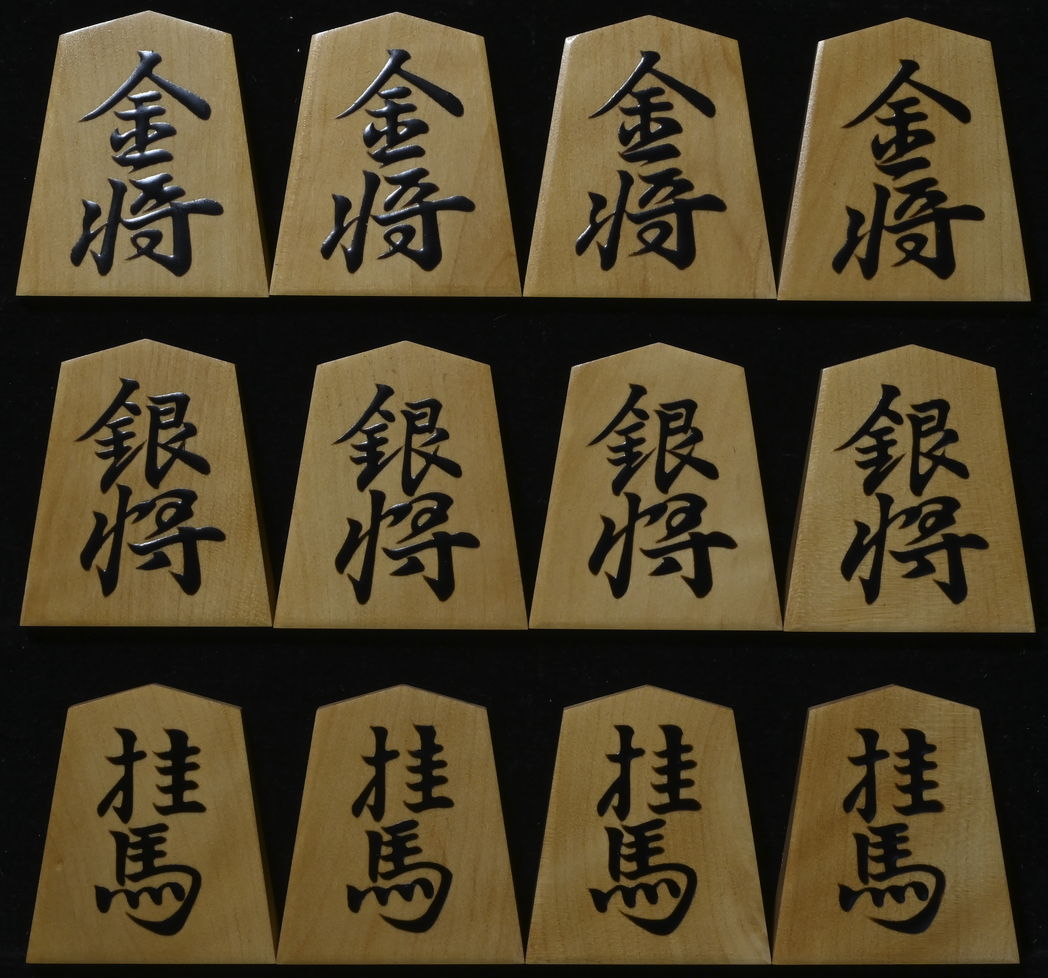 金将
金将
金将
金将
銀将
銀将
銀将
銀将
桂馬
桂馬
桂馬
桂馬